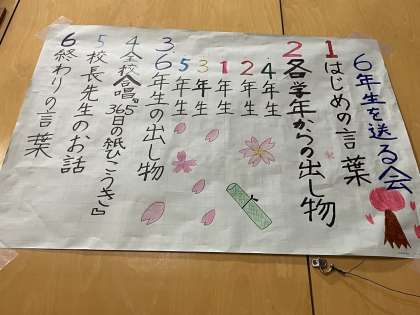 6年生を送る会
1はじめの言葉
2各学年からの出し物
4年生
2年生
1年生
3年生
5年生
3.6年生の出し物
4全校合唱『365日の紙ひこうき』
5校長先生のお話
6終わりの言葉